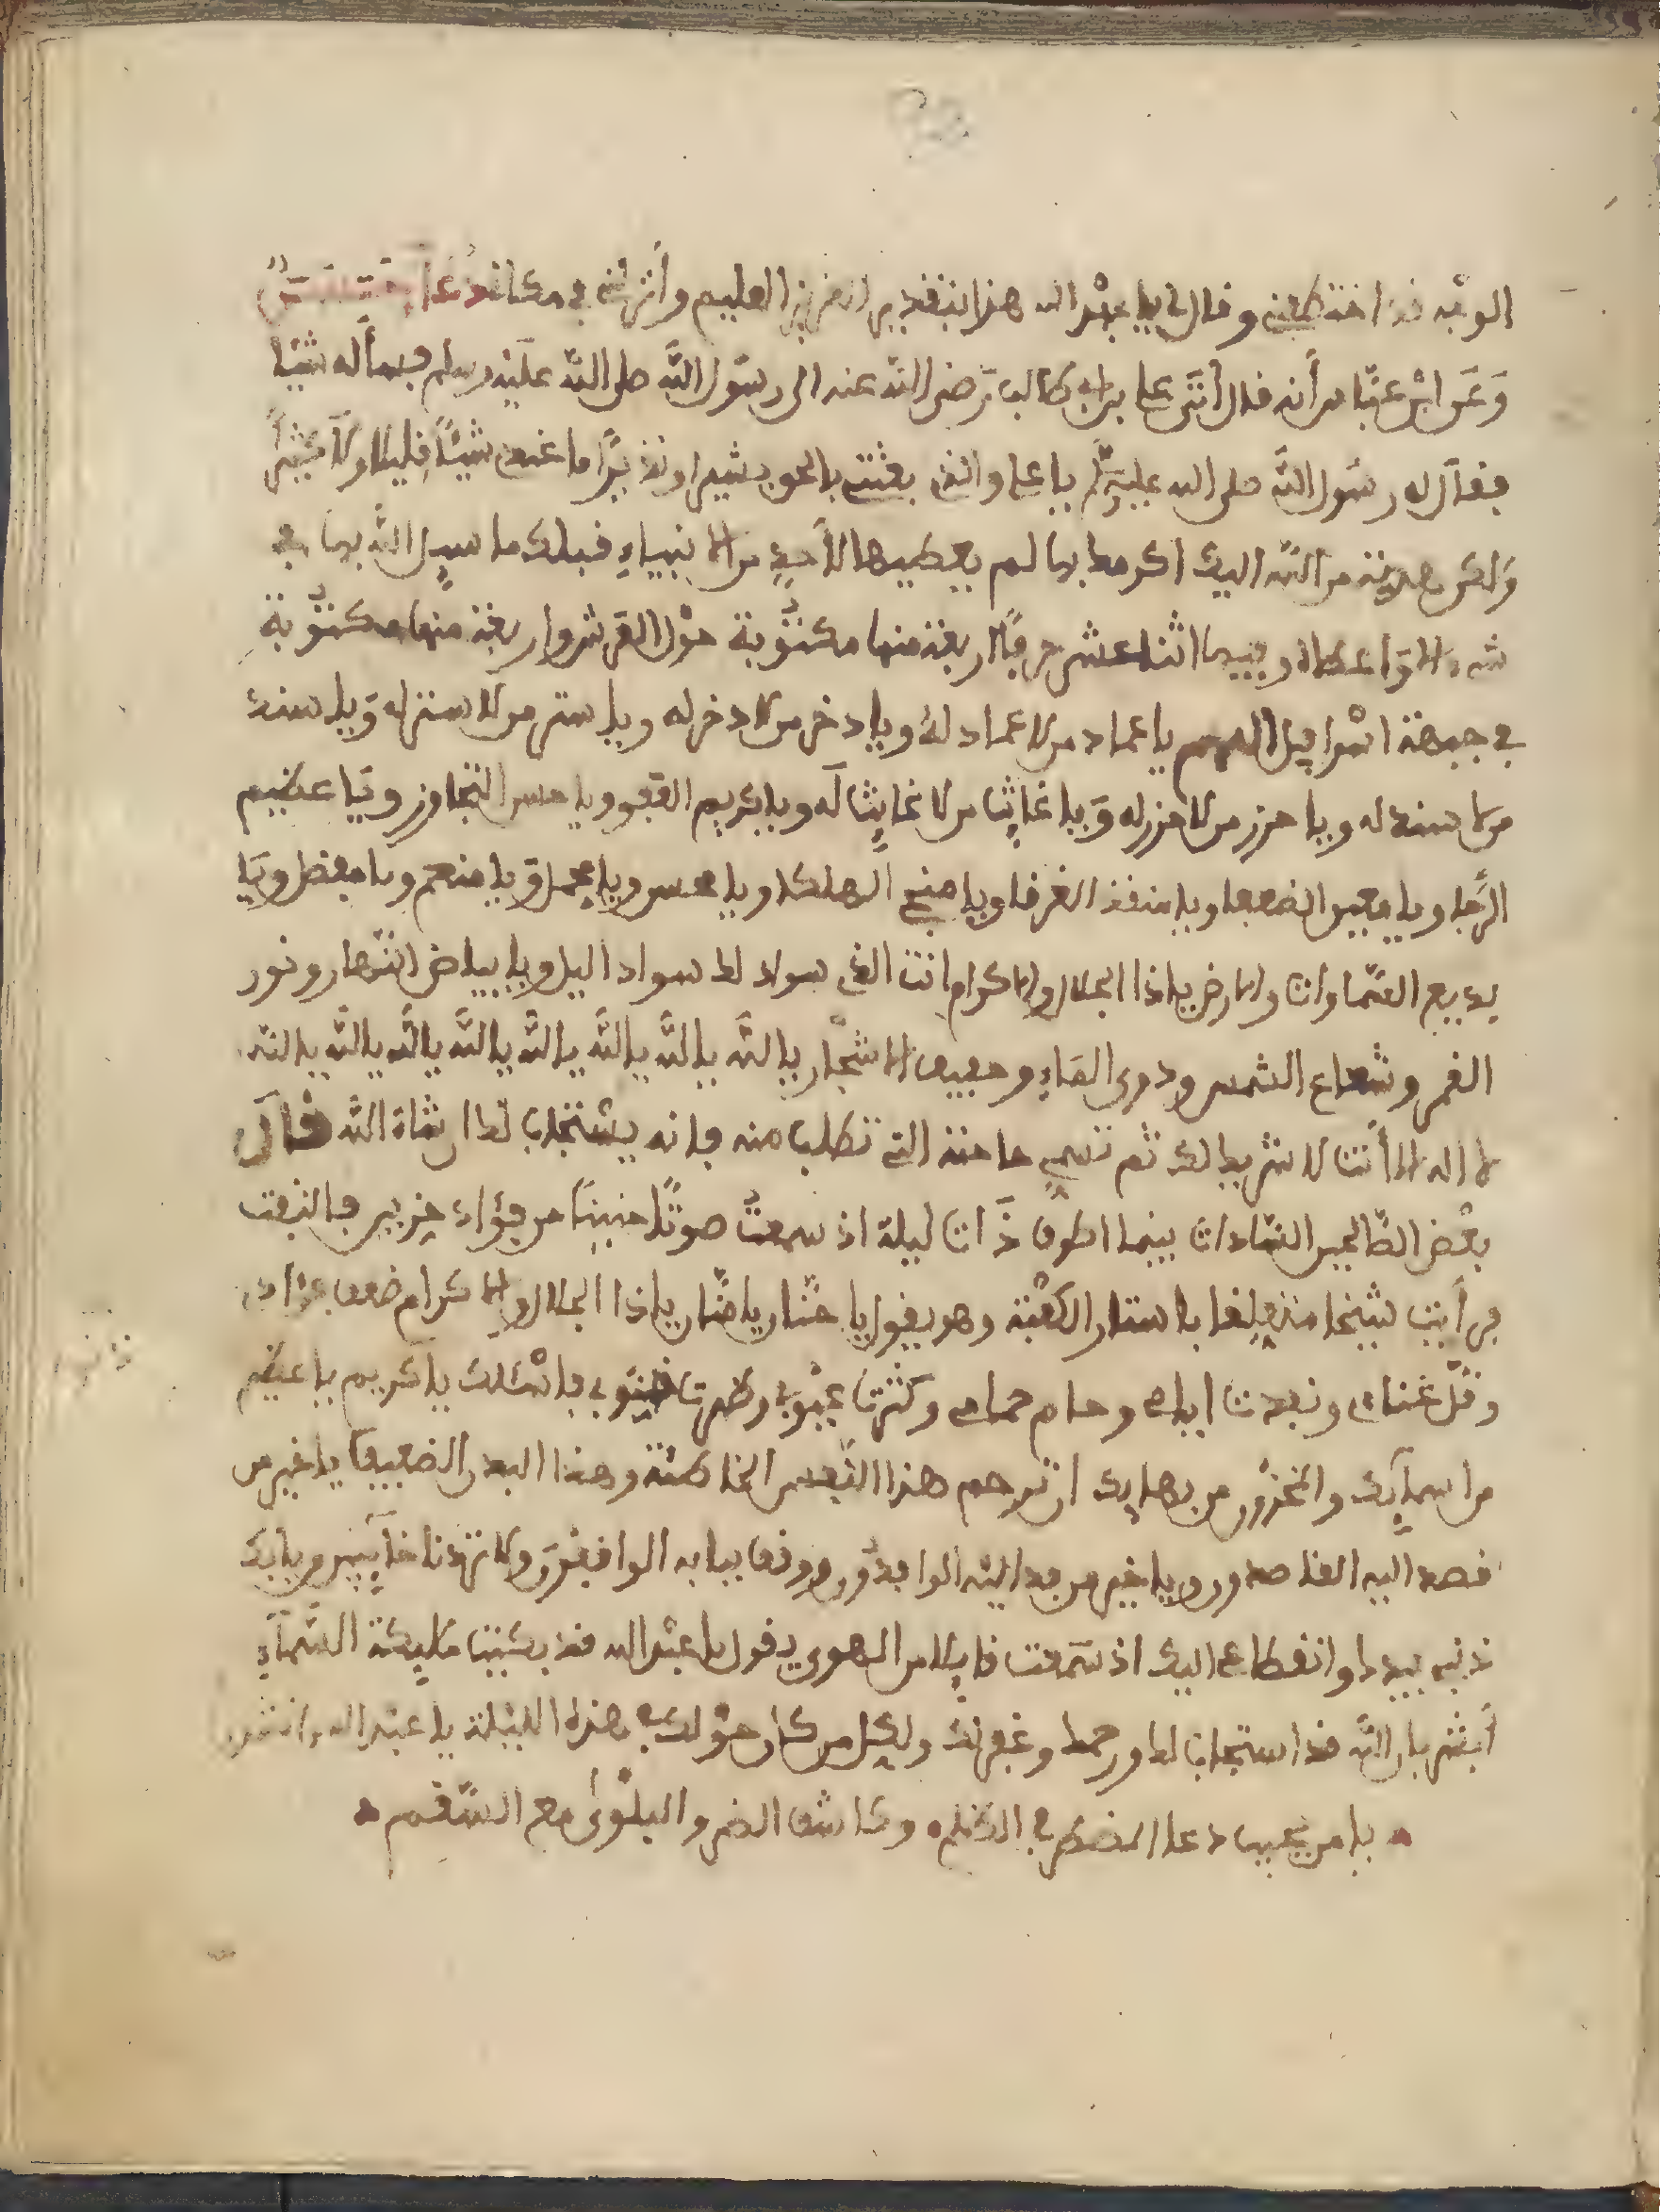 الوجه قد اختطفني وقال لي يا عبد الله هذا بتقدير العزيز العليم وأنزلني في مكاني دعاء
وَعَن ابْن عبّاس أنه قال أتَى علي بن ابي طالب رَضي الله عنه الى رسول الله صلى الله عليه وسلم فسأله شيئا
فقال له رسُول الله صلى الله عليه وسلم يا علي والذي بعثني بالحق بشيرا ونذيرًا ما عندي شيئًا قليلا ولا كثيراً
وَلكن هدية من الله اليك اكرمك بها لم يعطيها لأحدٍ من الانبياءِ قبلك ما سيل الله بها في
شيء الا وَاعطاه وفيها اثنا عشر حرفًا اربعة منها مكتوُبة حوْل العرش واربعة منها مكتوُبة
في جبهة اسْرافيل اللهم يا عماد من لا عماد لهُ ويا دخر من لا دخر له ويا ستر من لا ستر له وَيا سند
من لا سند له ويا حرز من لا حرز له وَيا غياث من لا غياث لَه ويا كريم العَفو ويا حسن التجاوز ويَا عظيم
الرَّجا ويا معين الضعفا ويا منقذ الغرقا ويا منجي الهلكا ويا محسن ويا مجمل وَيا منعم ويا مفضل ويَا
بديع السّماوات والارض يا ذا الجلال والاكرام انت الذي سجد لك سواد اليل ويا بياض النّهار ونور
القمر وشعاع الشمس ودوي المَاءِ وحفيف الاشجَار يا اللَّه يا اللَّه يا اللَّه يا اللَّه يا اللَّه يا اللَّه يا اللَّه يا اللَّه
لا اله الا أنت لا شريك لك ثم تسمي حاجتك التي تطلب منه فانه يسْتجاب لك ان شاء اللّه قال
بعْض الصَّالحين السّادات بينما اطوف ذَات ليلة اذ سمعتُ صوتًا حنيناً من فؤاد حزين فالتفت
فرأيت شيخا متعلِقا باستار الكعْبة وهو يقول يا حنّان يا منّان يا ذا الجلال والاكرام ضعف
وقَلّ غنائي ونفدت ايامي وحام حمامي وكثرت عيُوبي وظهرت فاسْئلك يا كريم يا عظيم
من اسمآيك والمخزُون من بهايك ان ترحم هذا النفس الخاطئة وهذا البدن الضعيف يا خير من
قصد اليه القاصدون ويا خير من وفد اليه الوافدُون ووقف ببابه الواقفوَن ولا تردنا خآيبين
اذ سَمعت قايلا من الهوى يقول يا عبْد الله قد بكيت مَليكة السَّمآءِ
أبشر بان اللَّه قد استجاب لك ورحمك وغفر لك ولكل من كان حوْلك في هذه الليْلة يا عبْد الله وانشد
يا من يجيب دعا المضطر في الظلم وكاشف الضر والبلْوى مع السّقم